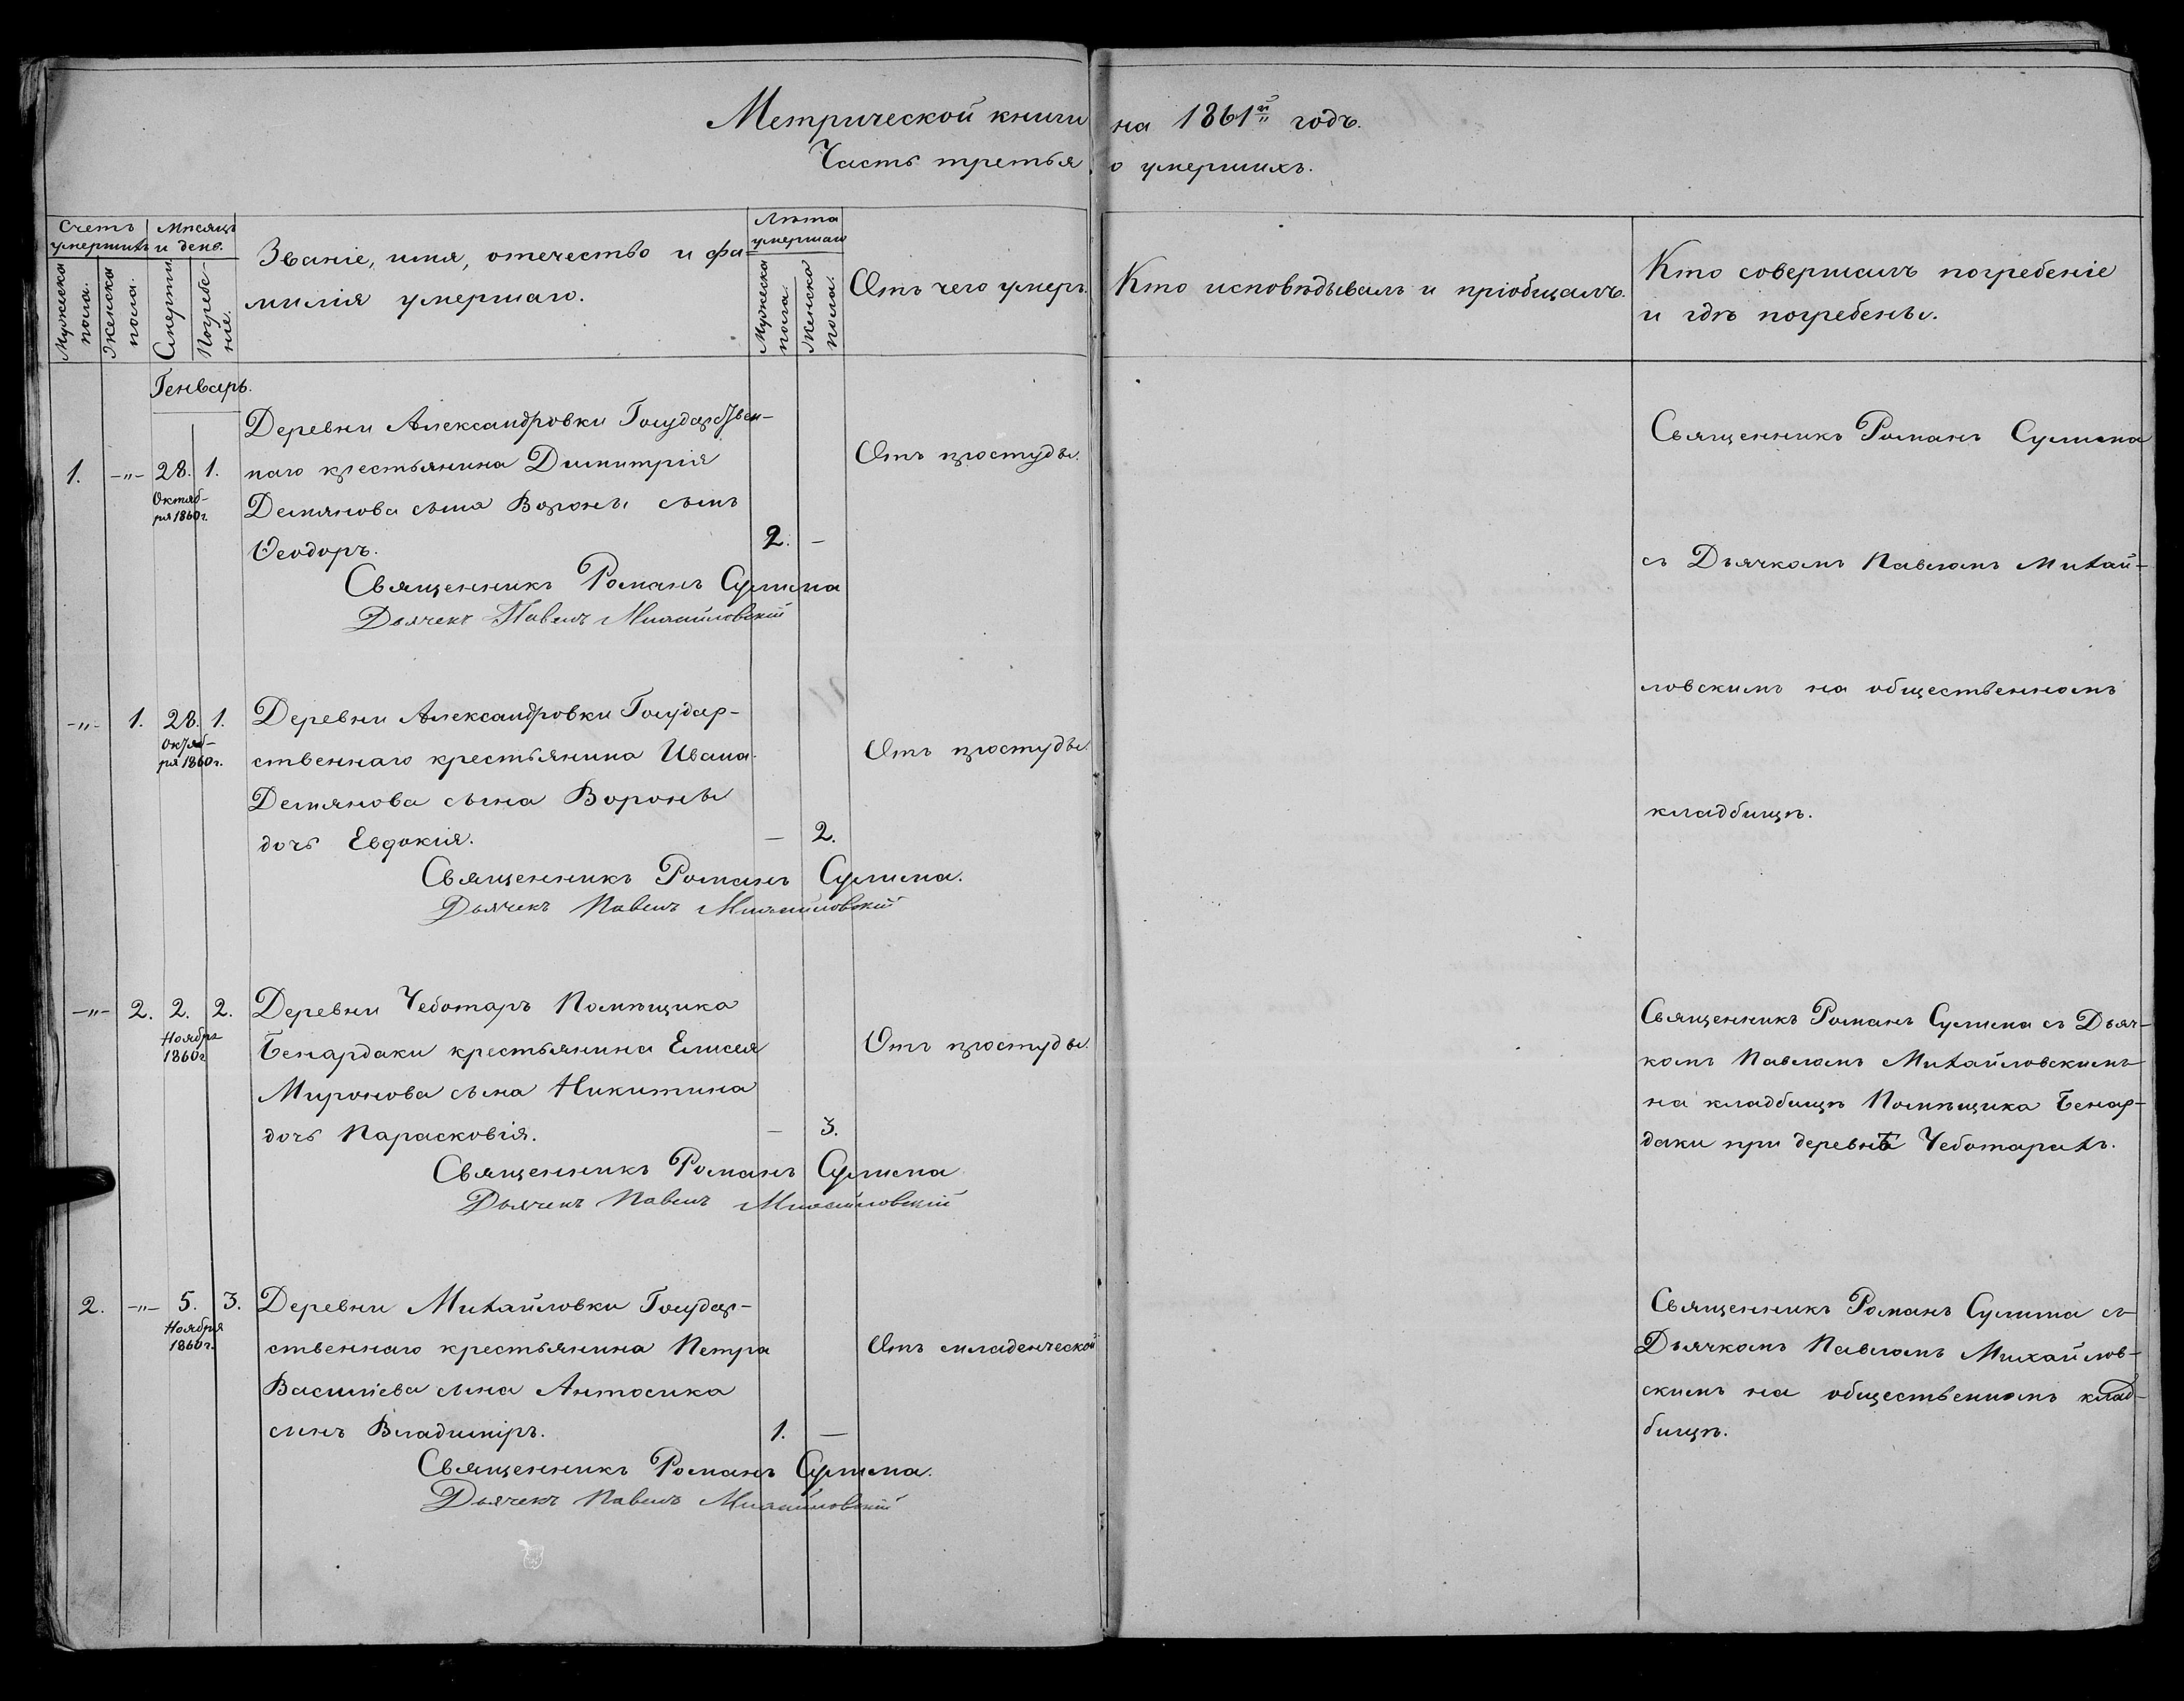 Метрической книги на 1861й годъ.
Часть третья о умершихъ.
Счетъ умершихъ
Мужеска пола.
Женска пола.
Мѣсяцъ и день.
Смерти
Погребе-
нія.
Званіе, имя, отечество и фа-
милія умершаго.
Лѣта умершаго
Мужеска пола.
Женска пола.
Отъ чего умеръ.
Кто исповѣдывалъ и пріобщалъ.
Кто совершалъ погребеніе
и гдѣ погребены.
Генварь.
1. -„- 28. 1.
Октяб-
ря 1860 г.
Деревни Александровки Государствен-
наго крестьянина Димитрія
Демянова сына Вороны сынъ
Ѳеодоръ. 2. —
Отъ простуды.
Священникъ Романъ Сулима
Дьячекъ Павелъ Михайловскій
Священникъ Романъ Сулима
съ Дьячкомъ Павломъ Михай-
ловскимъ на общественномъ
кладбищѣ.
-„- 1. 28. 1.
Октяб-
ря 1860 г.
Деревни Александровки Государ-
ственнаго крестьянина Ивана
Демянова сына Вороны
дочь Евдокія. — 2.
Отъ простуды.
Священникъ Романъ Сулима.
Дьячекъ Павелъ Михайловскій
-„- 2. 2. 2.
Ноября
1860 г.
Деревни Чеботаръ Помѣщика
Бенардаки крестьянина Елисея
Миронова сына Никитина
дочь Парасковія. — 3.
Отъ простуды.
Священникъ Романъ Сулима
Дьячекъ Павелъ Михайловскій
Священникъ Романъ Сулима съ Дьяч-
комъ Павломъ Михайловскимъ
на кладбищѣ Помѣщика Бенар-
даки при деревнѣ Чеботарахъ.
2. -„- 5. 3.
Ноября
1860 г.
Деревни Михайловки Государ-
ственнаго крестьянина Петра
Василіева сына Антосика
сынъ Владиміръ. 1. —
Отъ младенческой
Священникъ Романъ Сулима.
Дьячекъ Павелъ Михайловскій
Священникъ Романъ Сулима съ
Дьячкомъ Павломъ Михайлов-
скимъ на общественномъ клад-
бищѣ.